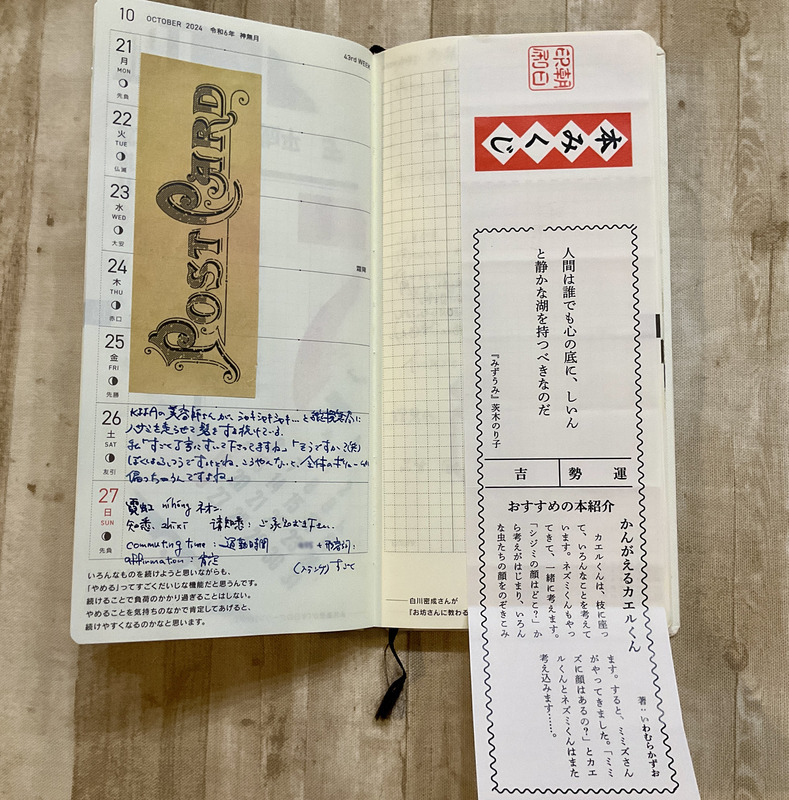 10 OCTOBER 2024 令和6年 神無月
43rd WEEK
21
月
MON
先負
22
火
TUE
仏滅
23
水
WED
大安
24
木
THU
赤口
霜降
25
金
FRI
先勝
26
土
SAT
友引
27
日
SUN
先負
POST CARD
の美容師さんが、シャキシャキシャキ…と
ハサミを走らせて髪を
私「すごく丁寧に すいて下さってますね」「そうですか?(笑)
全体の
偏っちゃうんですよね」
霓虹 níhóng ネオン
知悉 zhīxī 请知悉:ご承知おき下さい
commuting time:通勤時間
affirmation:肯定
すごく
いろんなものを続けようと思いながらも、
「やめる」ってすごくだいじな機能だと思うんです。
続けることで負荷のかかり過ぎることはしない。
やめることを気持ちのなかで肯定してあげると、
続けやすくなるのかなと思います。
——白川密成さんが
『お坊さんに教わる
本みくじ
人間は誰でも心の底に、しいん
と静かな湖を持つべきなのだ
『みずうみ』茨木のり子
運
勢
吉
おすすめの本紹介
かんがえるカエルくん
著:いわむらかずお
カエルくんは、枝に座っ
て、いろんなことを考えて
います。ネズミくんもやっ
てきて、一緒に考えます。
「シジミの顔はどこ?」か
ら考えがはじまり、いろん
な虫たちの顔をのぞきこみ
ます。すると、ミミズさん
がやってきました。「ミミ
ズに顔はあるの?」とカエ
ルくんとネズミくんはまた
考え込みます……。